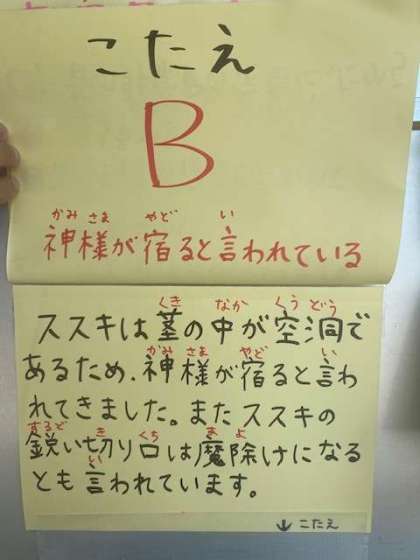 こたえ
B
かみ さま やど い
神様が宿ると言われている
くき なか くう どう
ススキは茎の中が空洞で
かみ さま やど い
あるため、神様が宿ると言わ
れてきました。またススキの
するど き くち ま よ
鋭い切り口は魔除けになる
い
とも言われています。
↓ こたえ